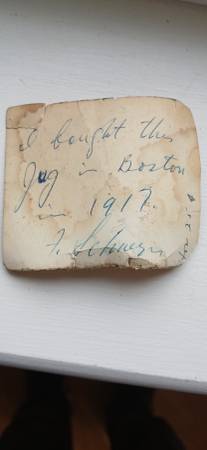 I bought this
Jug in Boston
in 1917.
F.